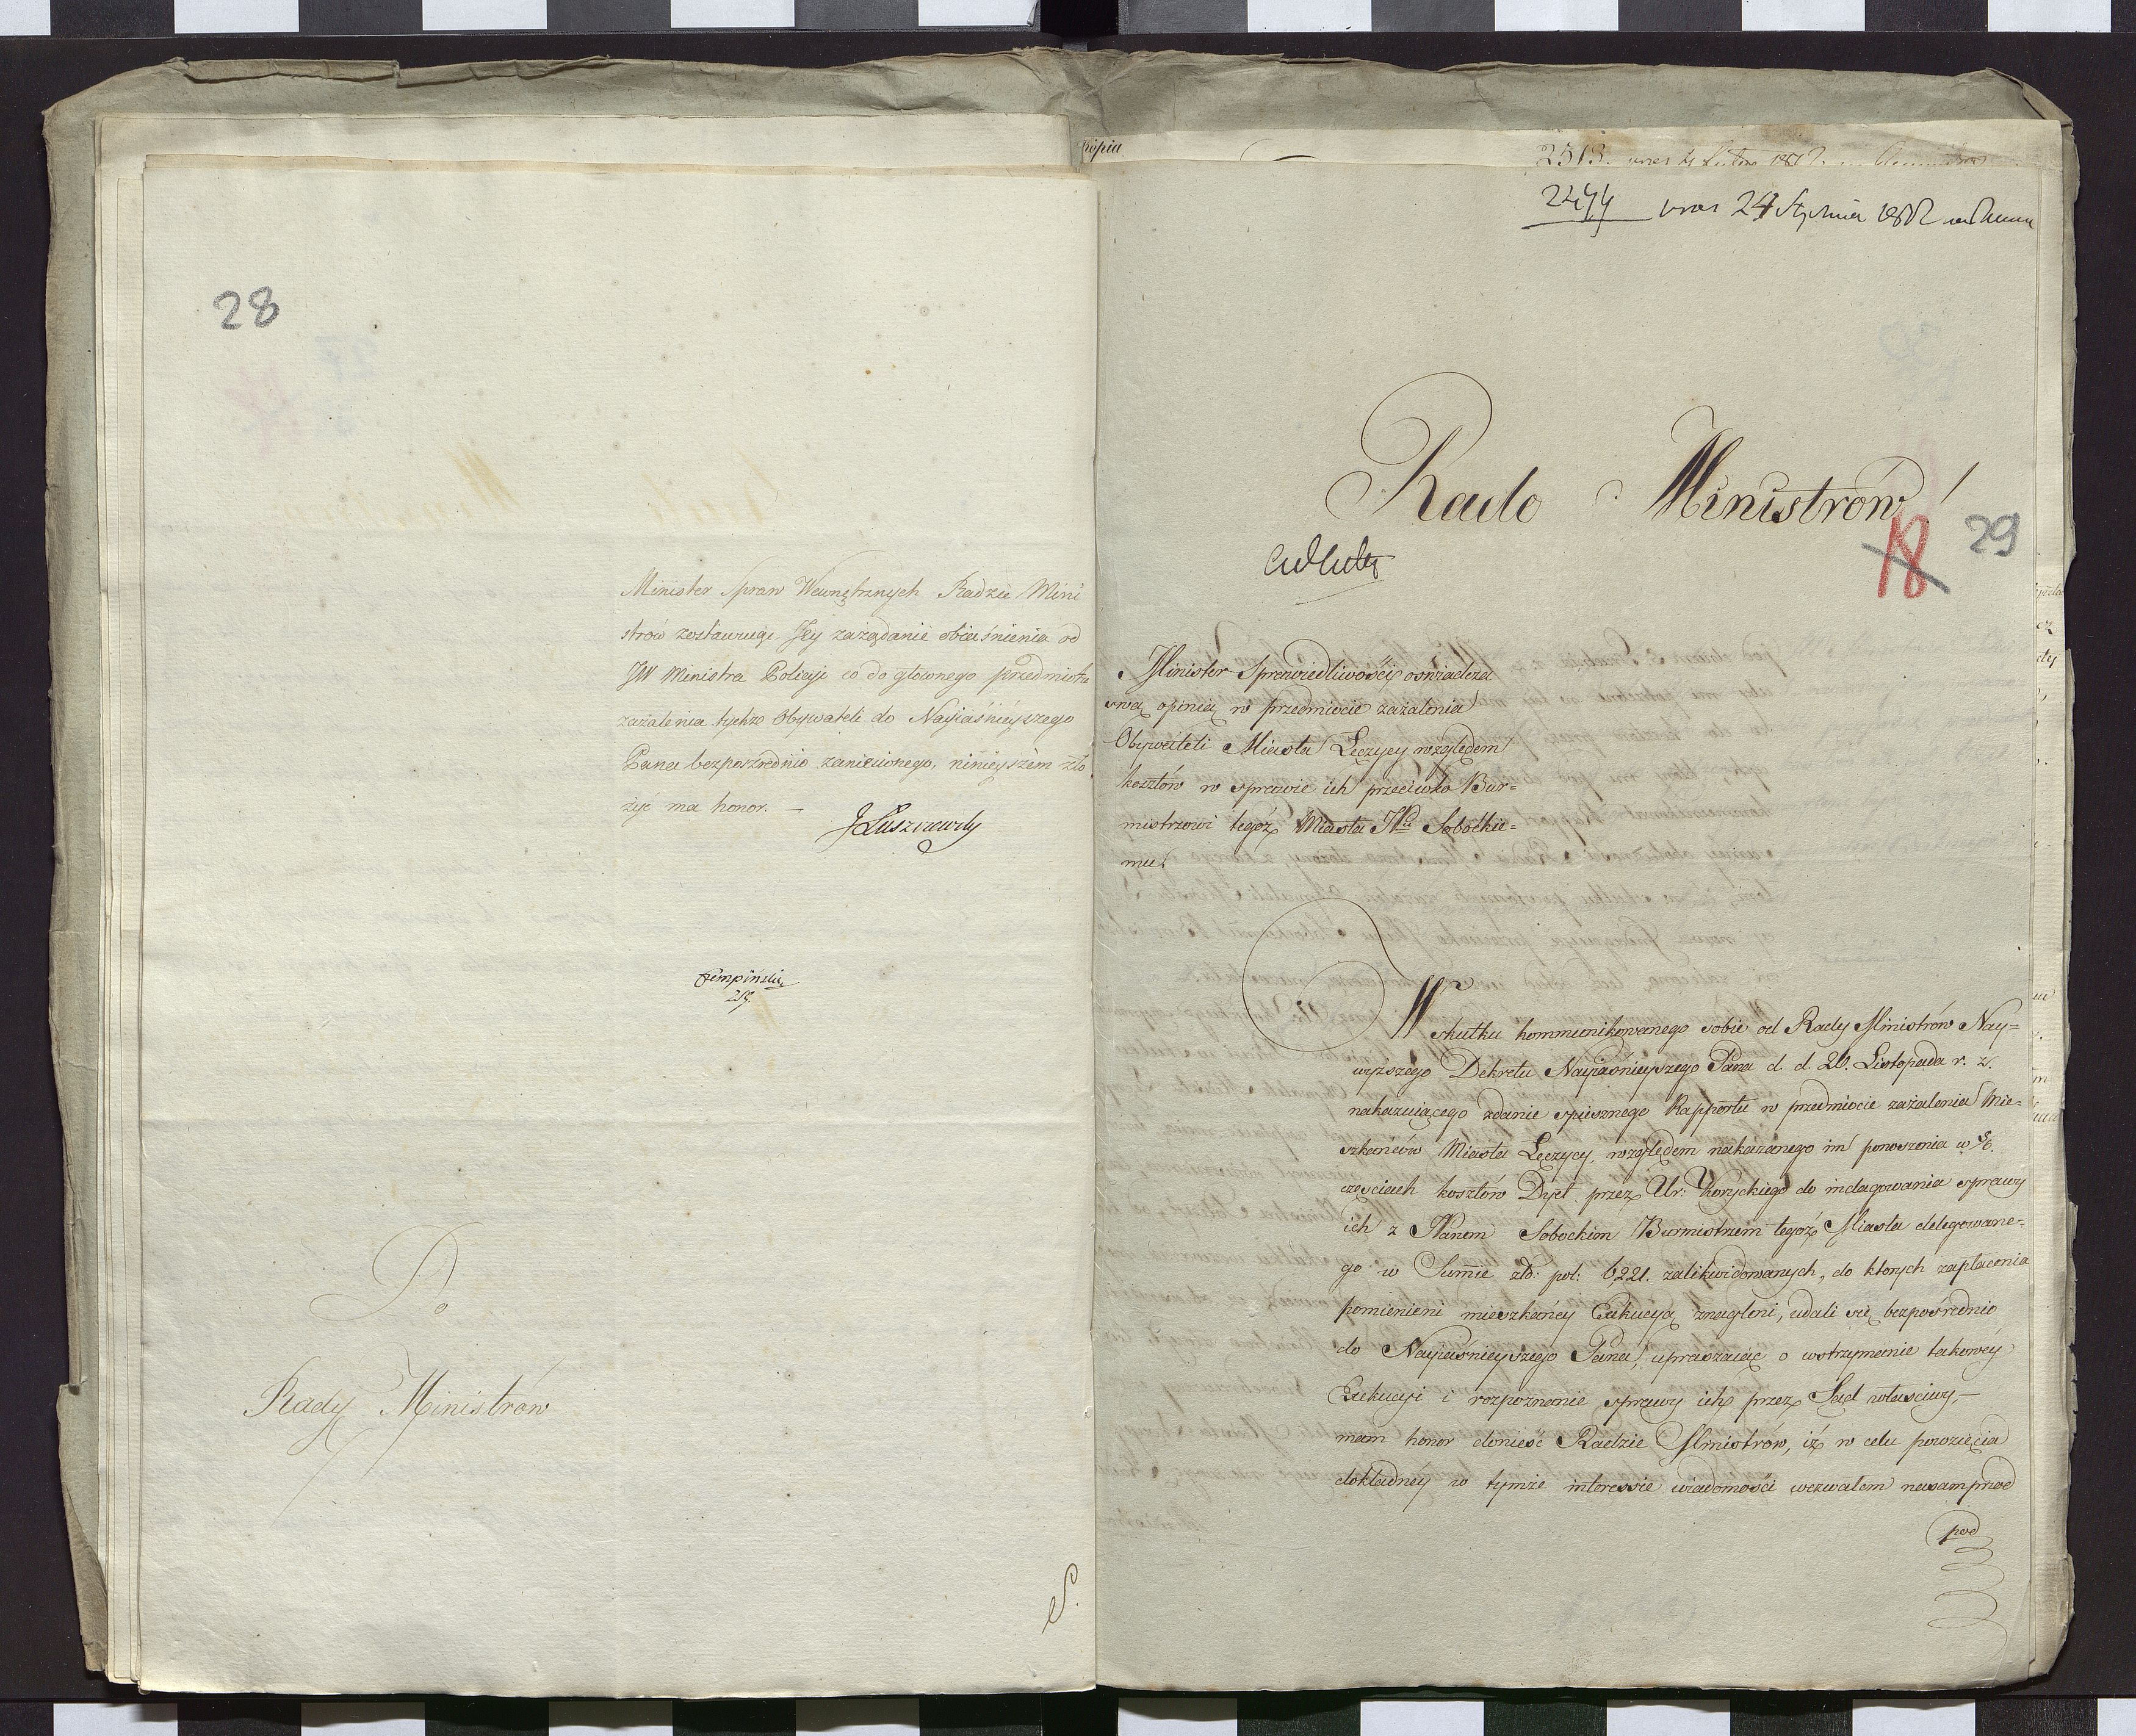 28
Minister Spraw Wewnętrznych Radzie Mini
strów zostawuiąc Jey zażądanie obiaśnienia od
JW Ministra Policyi co do głownego przedmiotu
zażalenia tychże Obywateli do Nayiaśnieyszego
Pana bezpośrednio zaniesionego, ninieyszem zło
żyć ma honor. —
JŁuszczewsky
Do
Rady Ministrów
kopia
2513.
2474 24 Stycznia 1812
Rado Ministrów!
18 29
Minister Sprawiedliwości oświadcza
swą opinią w przedmiocie zażalenia
Obywateli Miasta Łęczycy względem
kosztów w sprawie ich przeciwko Bur=
mistrzowi tegoż Miasta JPu Sobockie=
mu.
W skutku kommunikowanego sobie od Rady Ministrów Nay=
wyższego Dekretu Nayiaśnieyszego Pana d. d. 20. Listopada r. z.
nakazuiącego zdanie spiesznego Rapportu w przedmiocie zażalenia Mie=
szkańców Miasta Łęczycy, względem nakazanego im ponoszenia w
częściach kosztów Dyet przez Ur: Korzyckiego do indagowania sprawy
ich z JPanem Sobockim Burmistrzem tegoż Miasta delegowane=
go w Summie złł: pol: 6,221. zalikwidowanych, do których zapłacenia
pomienieni mieszkańcy Exekucyą znagleni, udali się bezpośrednio
do Nayiaśnieyszego Pana, upraszaiąc o wstrzymanie takowey
Exekucyi i rozpoznanie sprawy ich przez Sąd właściwy,—
mam honor donieść Radzie Ministrów, iż w celu powzięcia
dokładney w tymże interessie wiadomości wezwałem nasamprzod
pod